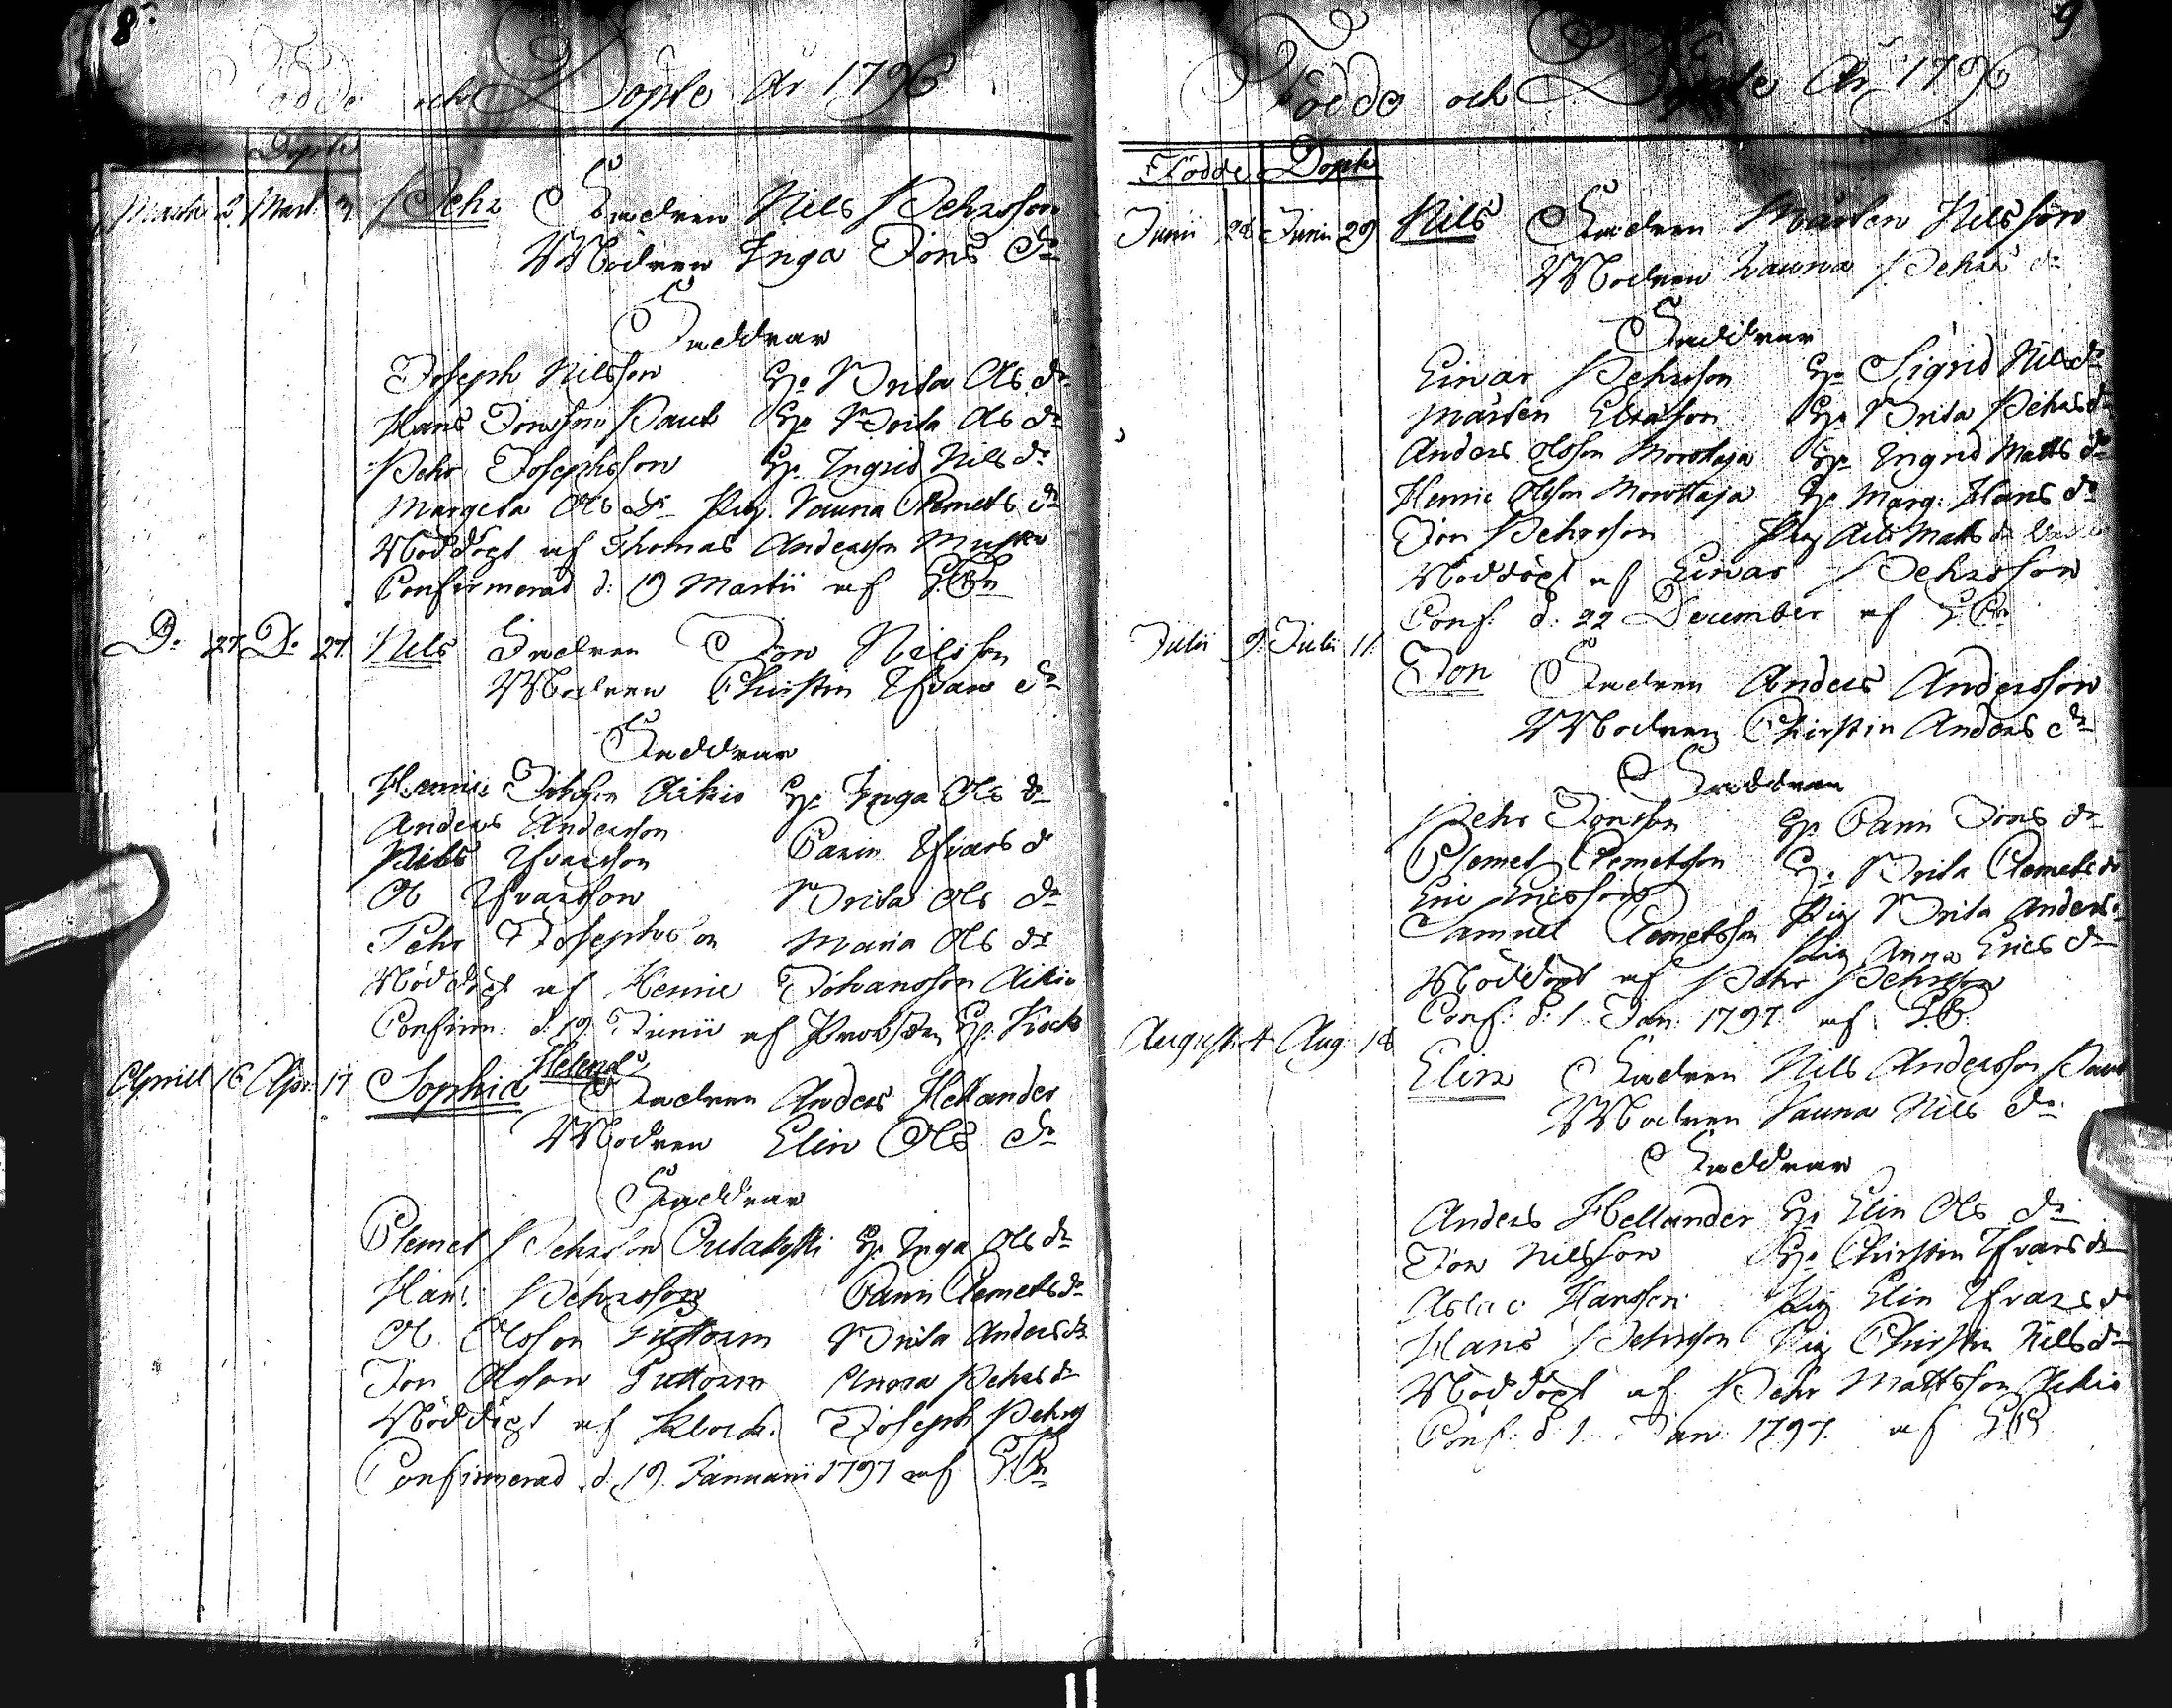 8
Födde och Döpte År 1796
Döpte
Martii 2. Mart. 3. Pehr Fadren Nils Pehrsson
Modren Inga Jons Dr
Faddrar
Joseph Nilsson Hu. Brita Ols dr
Hans Jonsson Paut Hu. Brita Ols dr
Pehr Josephsson Hu. Ingrid Nils dr
Margeta Ols Dr Pig. Launa Clemets dr
Nöddöpt af Thomas Andersson
Confirmerad d: 19 Martii af
Do 27 Do 27. Nils Fadren Jon Nilsson
Modren Christin Ifvars dr
Faddrar
Henric Johansson Aikio Hu. Inga Ols dr
Anders Andersson
Nils Ifvarsson Carin Ifvars d
Ol Ifvarsson Brita Ols dr
Pehr Josephsson Maria Ols dr
Nöddöpt af Henric Johansson Aikio
Confirm: d: 19 Junii af Probsten
Aprill 16 Apr. 17 Sophia Helena Fadren Anders Hellander
Modren Elin Ols dr
Faddrar
Clemet Pehrsson Outakoski Hu. Inga Ols dr
Hans Pehrsson Carin Clemets dr
Ol Olsson Guttorm Brita Anders dr
Jon Olsson Guttorm Anna Pehrs dr
Nöddöpt af Klock. Joseph
Confirmerad d. 19. Januarii 1797 af
9
Födde och Döpte År 1796
Födde Döpte
Junii 28 Junii 29 Nils Fadren Mårten Nilsson
Modren Launa Pehrs dr
Faddrar
Eivar Pehrsson Hu. Sigrid Nils dr
Mårten Hu. Brita Pehrs dr
Anders Olsson Morottaja Hu. Ingrid Matts dr
Henric Olsson Morottaja Hu. Marg: Hans dr
Jon Pehrsson Pig Matts dr
Nöddöpt af Eivar Pehrsson
Conf: d: 22 December af
Julii 9. Julii 11. Jon Fadren Anders Andersson
Modren Christin Anders dr
Faddrar
Pehr Jonsson Hu. Carin Jons dr
Clemet Clemetsson Hu. Brita Clemets dr
Eric Ericsson Pig Brita Anders
Samuel Clemetsson Pig Anna Erics dr
Nöddöpt af Pehr Pehrsson
Conf: d: 1 Jan: 1797 af
Augusti 4 Aug. 18 Elin Fadren Nils Andersson Paut
Modren Launa Nils dr
Faddrar
Anders Hellander Hu. Elin Ols dr
Jon Nilsson Hu. Christin Ifvars dr
Aslac Hansson Pig Elin Ifvars d
Hans Pehrsson Pig Christin Nils dr
Nöddöpt af Pehr Mattsson Aikio
Conf: d: 1. Jan: 1797. af